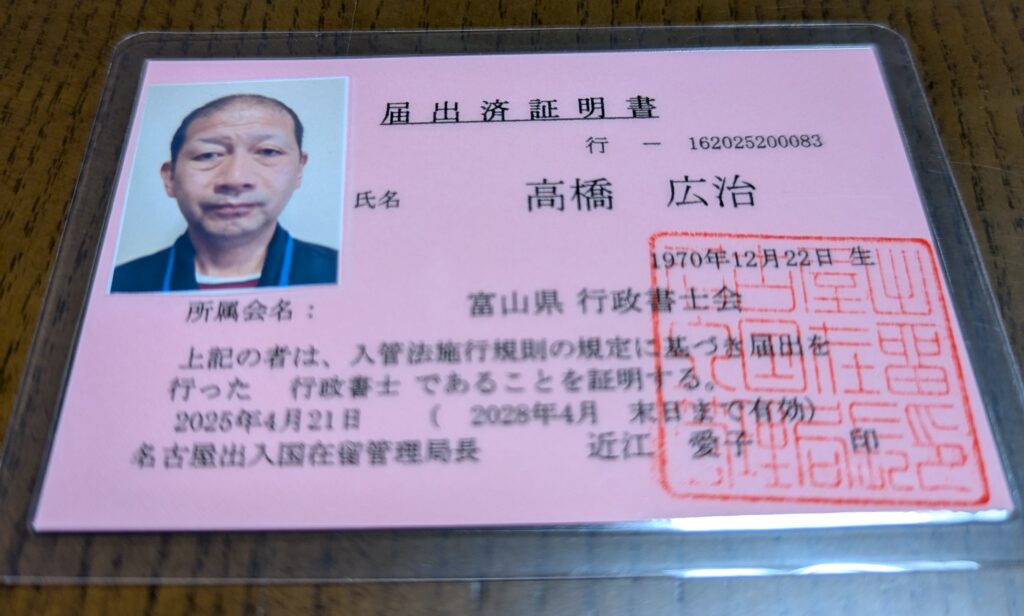 届出済証明書
行 － 162025200083
氏名 高橋 広治
1970年12月22日 生
所属会名： 富山県 行政書士会
上記の者は、入管法施行規則の規定に基づき届出を
行った 行政書士 であることを証明する。
2025年4月21日 （ 2028年4月 末日まで有効）
名古屋出入国在留管理局長 近江 愛子 印